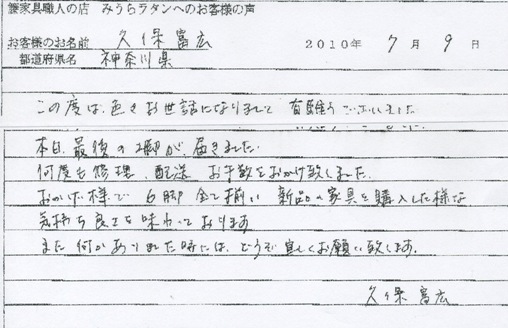 籐家具職人の店 みうらラタンへのお客様の声
お客様のお名前 久保富広 2010年 7月 9日
都道府県名 神奈川県
この度は、色々お世話になりまして 有難うございました
本日、最後の2脚が届きました.
何度も修理、配送 お手数をおかけ致しました.
おかげ様で 6脚 全て揃い 新品の家具を購入した様な
気持ち良さを味わっております
また何かありました時には、どうぞ宜しくお願い致します.
久保富広